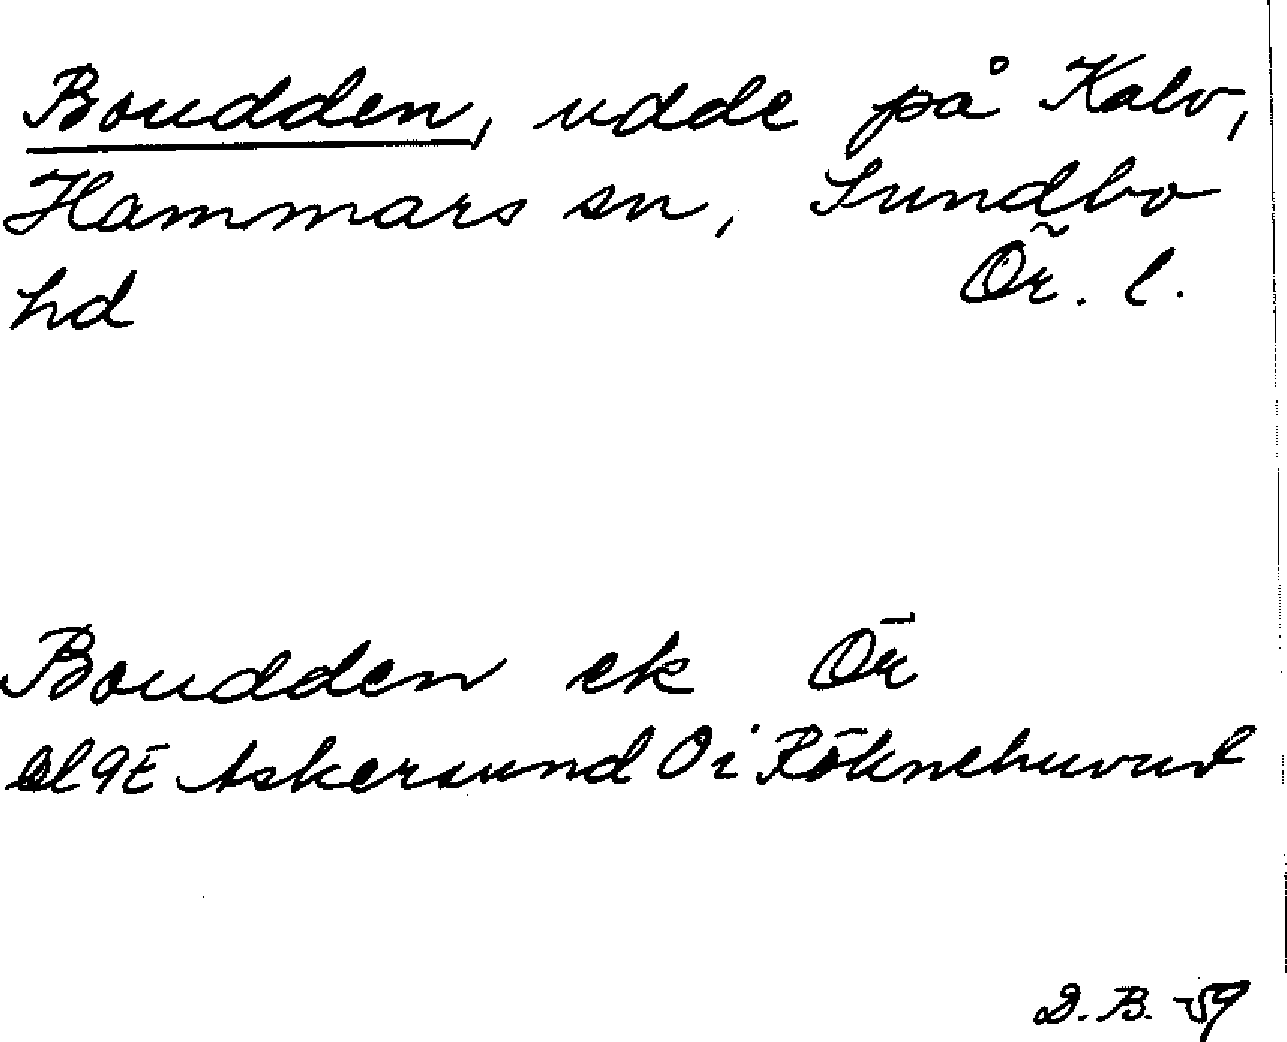 Boudden, udde på Kalv,
Hammars sn, Sundbo
hd Ör. l.
Boudden ek Ör
9E Askersund Ö i Röknehuvud
D. B. -59